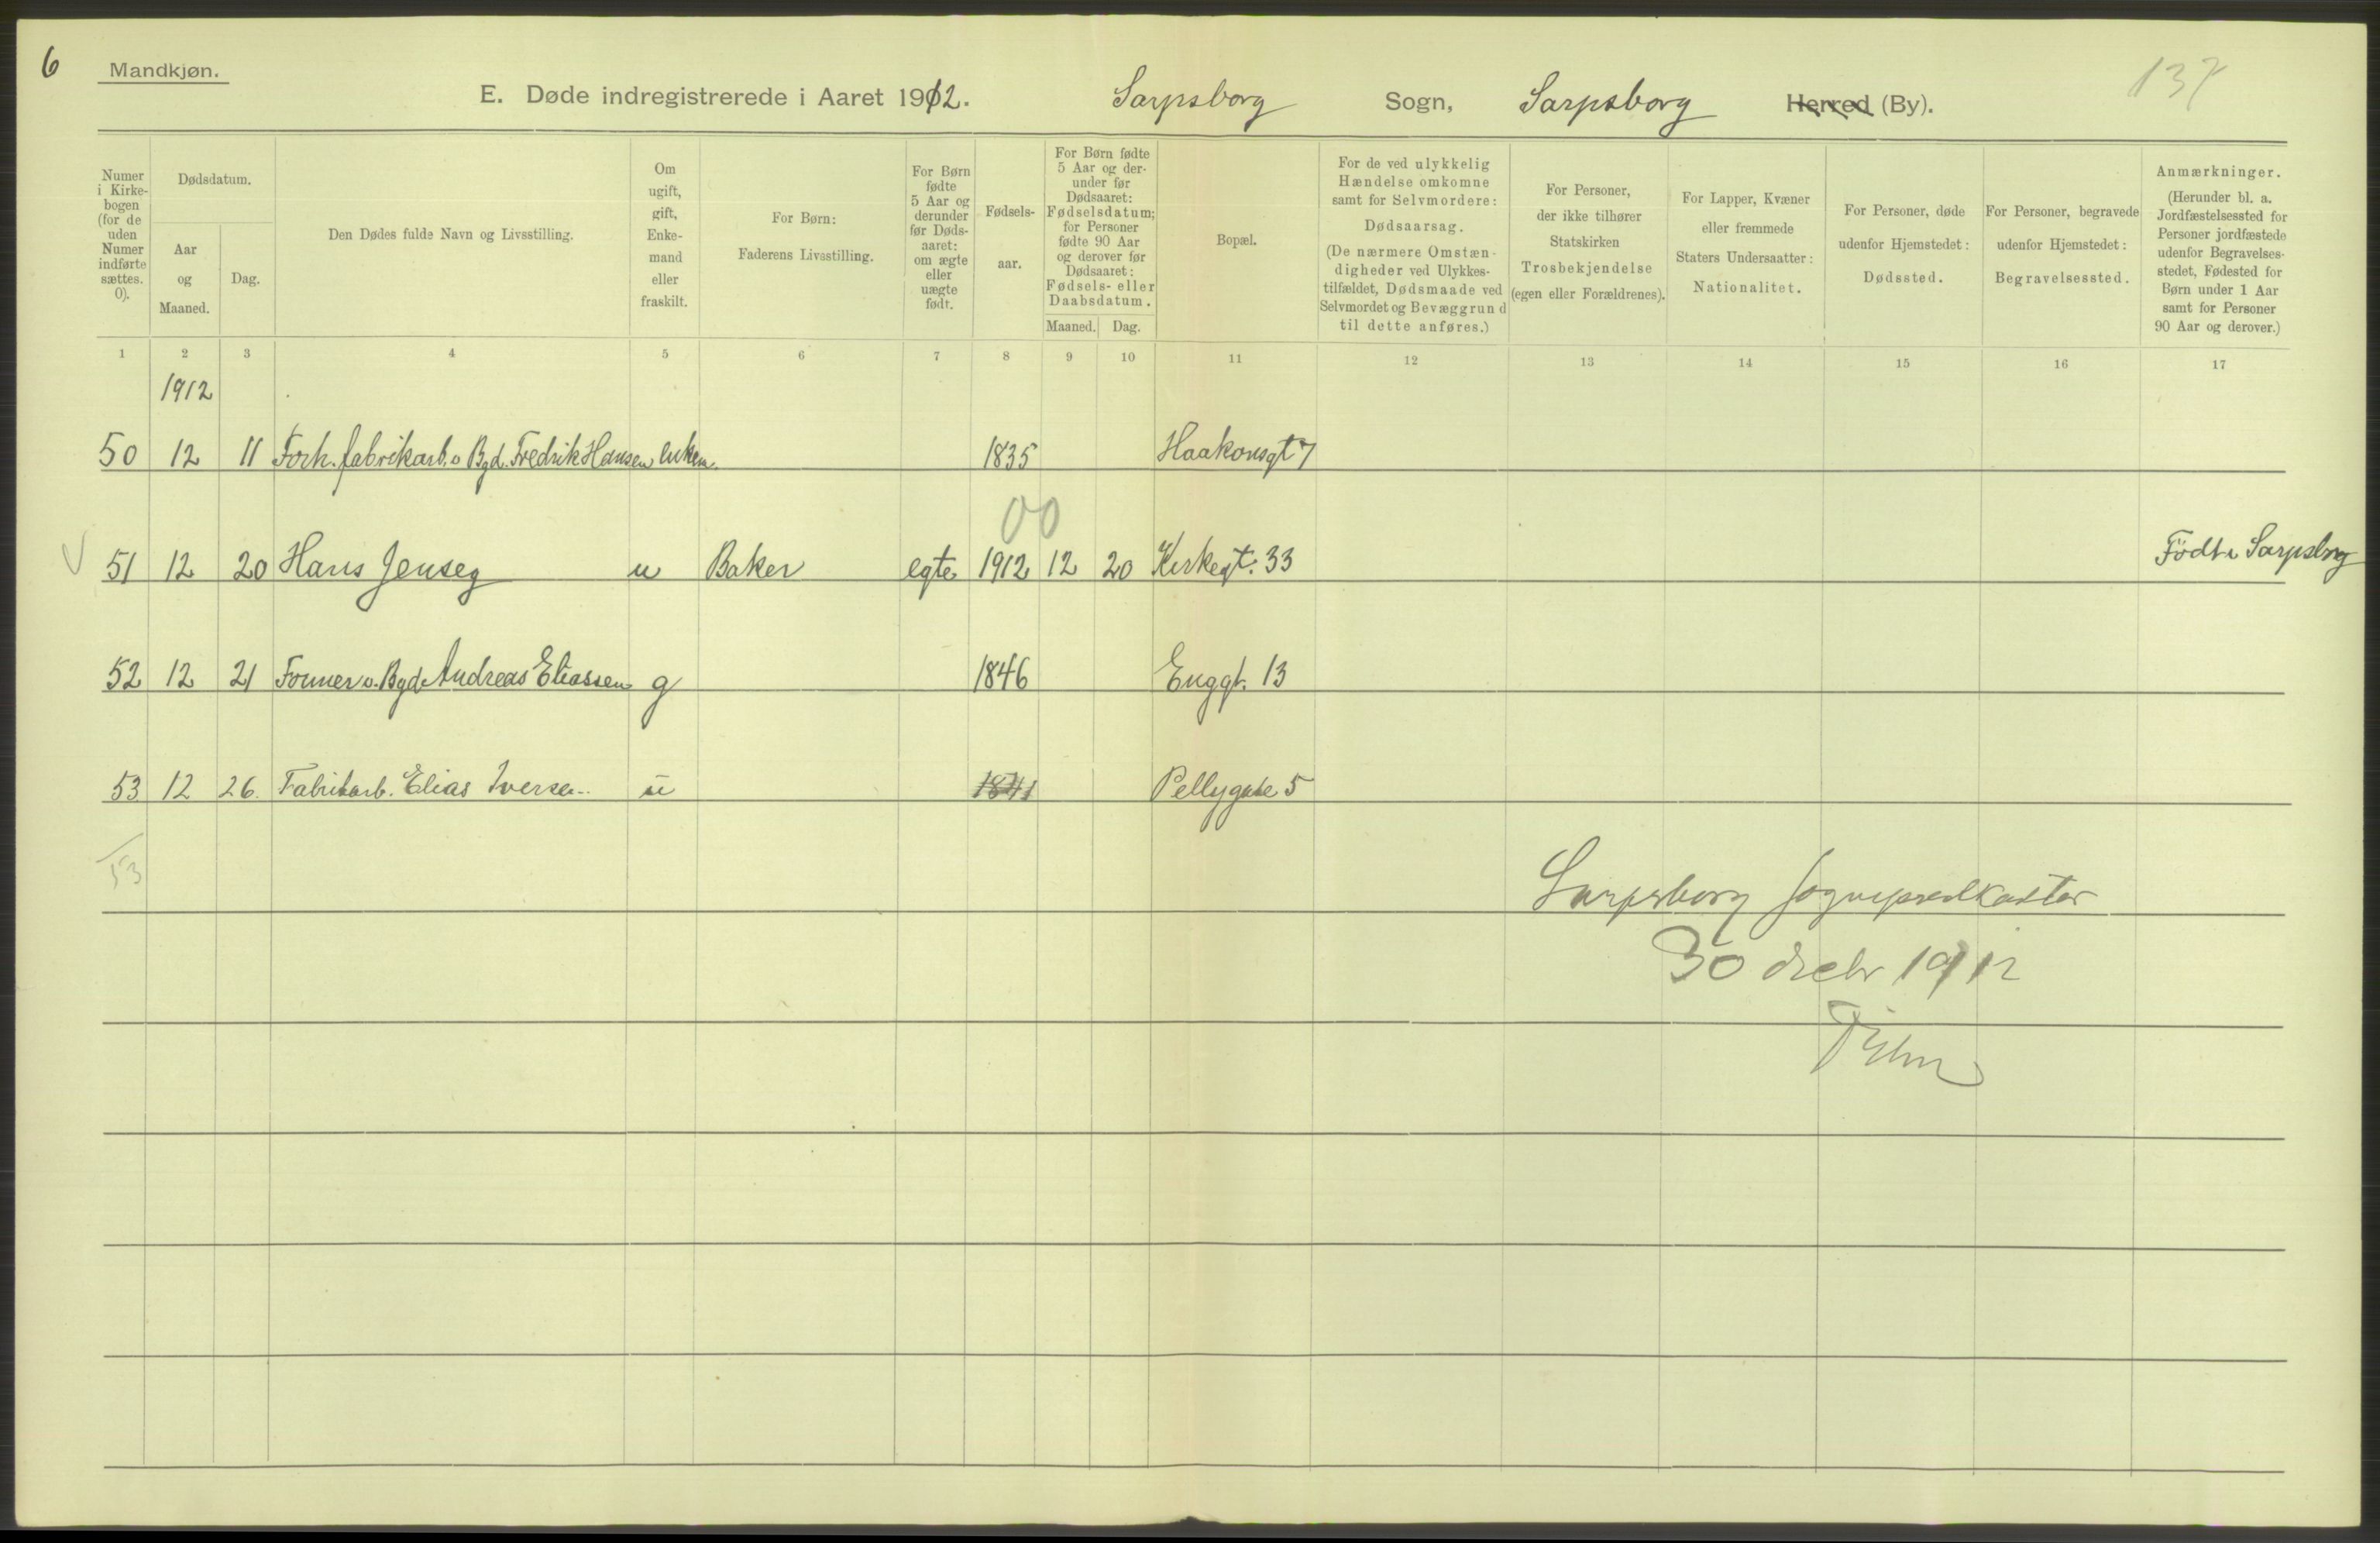 6
Mandkjøn.
E. Døde indregistrerede i Aaret 1912. Sarpsborg Sogn, Sarpsborg Herred (By).
137
Numer i Kirke-bogen (for de uden Numer indførte sættes. 0).
Dødsdatum.
Aar og Maaned.
Dag.
Den Dødes fulde Navn og Livsstilling.
Om ugift, gift, Enke-mand eller fraskilt.
For Børn: Faderens Livsstilling.
For Børn fødte 5 Aar og derunder før Døds-aaret: om ægte eller uægte født.
Fødsels-aar.
For Børn fødte 5 Aar og der-under før Dødsaaret: Fødselsdatum; for Personer fødte 90 Aar og derover før Dødsaaret: Fødsels- eller Daabsdatum.
Maaned. Dag.
Bopæl.
For de ved ulykkelig Hændelse omkomne samt for Selvmordere: Dødsaarsag. (De nærmere Omstæn-digheder ved Ulykkes-tilfældet, Dødsmaade ved Selvmordet og Bevæggrund til dette anføres.)
For Personer, der ikke tilhører Statskirken Trosbekjendelse (egen eller Forældrenes).
For Lapper, Kvæner eller fremmede Staters Undersaatter: Nationalitet.
For Personer, døde udenfor Hjemstedet: Dødssted.
For Personer, begravede udenfor Hjemstedet: Begravelsessted.
Anmærkninger. (Herunder bl. a. Jordfæstelsessted for Personer jordfæstede udenfor Begravelses-stedet, Fødested for Børn under 1 Aar samt for Personer 90 Aar og derover.)
1 2 3 4 5 6 7 8 9 10 11 12 13 14 15 16 17
1912
50 12 11 Forh. fabrikarb. o Bgd. Fredrik Hansen enkem. 1835 Haakonsgt 7
00
51 12 20 Hans Jenseg u Baker egte 1912 12 20 Kirkegt. 33 Födt i Sarpsbrg
52 12 21 Former o. Bgd. Andreas Eliassen g 1846 Enggt. 13
53 12 26. Fabrikarb. Elias Iversen u 1841 Pellygate 5
53
Sarpsborg
30 1912